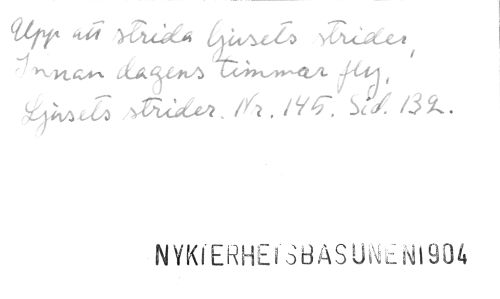 Upp att strida ljusets strider,
Innan dagens timmar fly,
Ljusets strider. Nr. 145. Sid. 132.
NYKTERHETSBASUNEN 1904